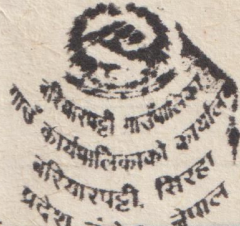 बरियारपट्टी गाउँपालिका
गाउँ कार्यपालिकाको कार्यालय
बरियारपट्टी, सिरहा
प्रदेश नेपाल